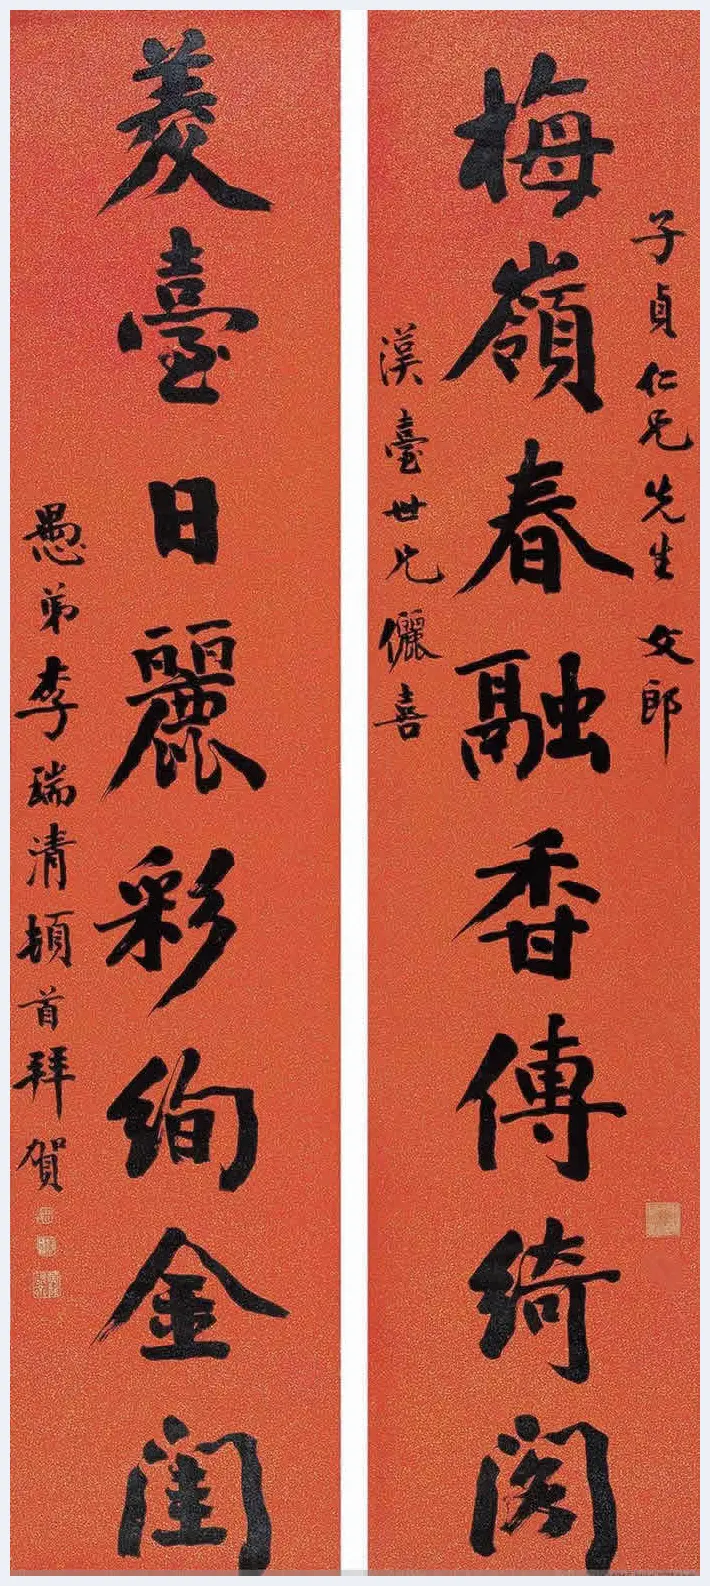 子貞仁兄先生 文郎
梅嶺春融香傳綺閣
漢臺世兄儷喜
菱臺日麗彩絢金閨
愚弟李瑞清頓首拜賀